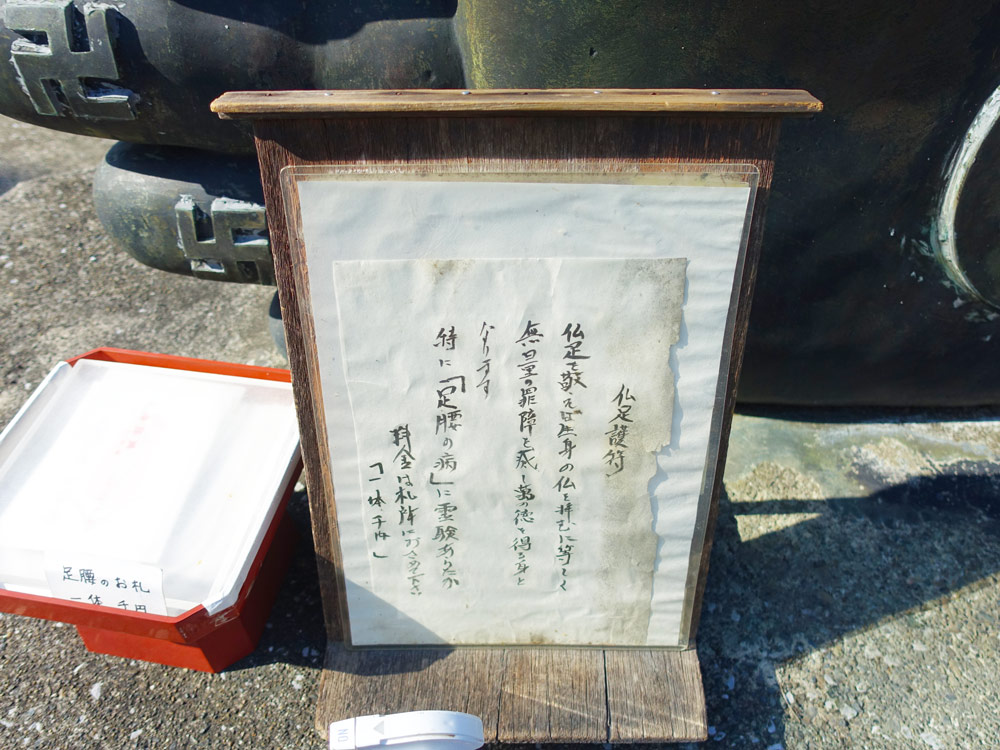 仏足護符
仏足を敬えば生身の仏を拝むに等しく
無量の罪障を滅し萬の徳を得る身と
なります
特に「足腰の病」に霊験あらたか
料金は札所に打合せ下さい
「一体千円」
足腰のお札
一体 千円
NO